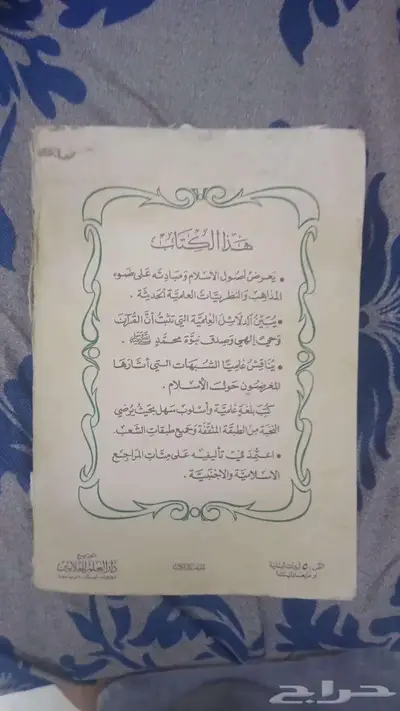 هذا الكتاب
• يعرض أصول الاسلام ومبادئه على ضوء
المذاهب والنظريات العلمية الحديثة .
• يبين الدلائل العلمية التي تثبت أن القرآن
وحي إلهي وصدق نبوة محمد ﷺ .
• يناقش علميا الشبهات التي أثارها
المغرضون حول الاسلام .
كتب بلغة علمية وأسلوب سهل بحيث يرضي
النخبة من الطبقة المثقفة وجميع طبقات الشعب .
• اعتمد في تأليفه على مئات المراجع
الاسلامية والاجنبية .
دار العلم للملايين
حراج